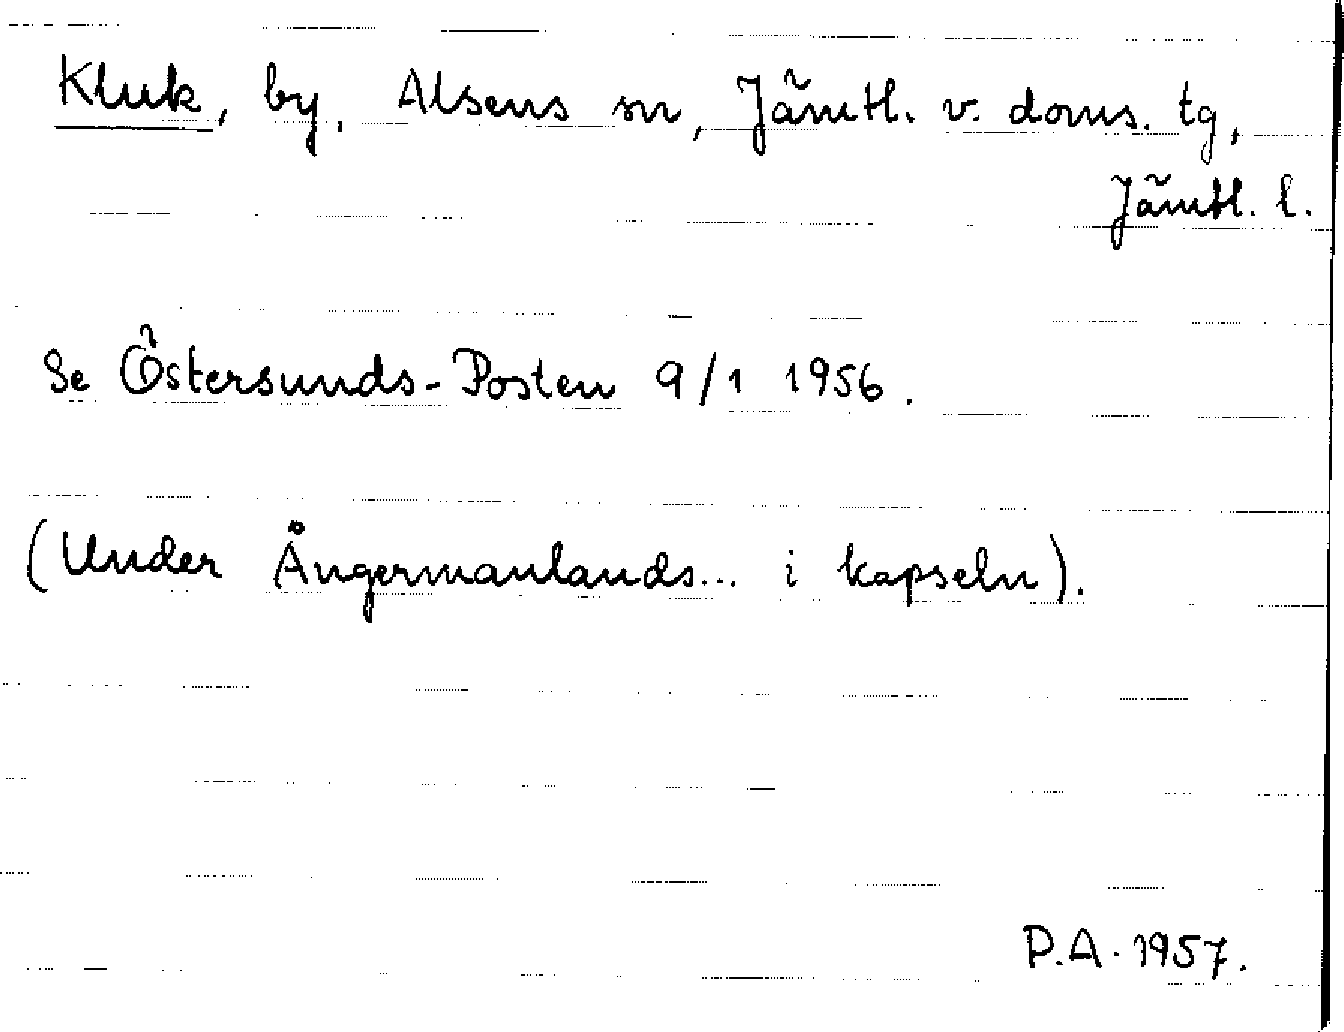 Kluk, by, Alsens sn, Jämtl. v. doms. tg,
Jämtl. l.
Se Östersunds-Posten 9/1 1956.
(Under Ångermanlands... i kapseln).
P.A. 1957.